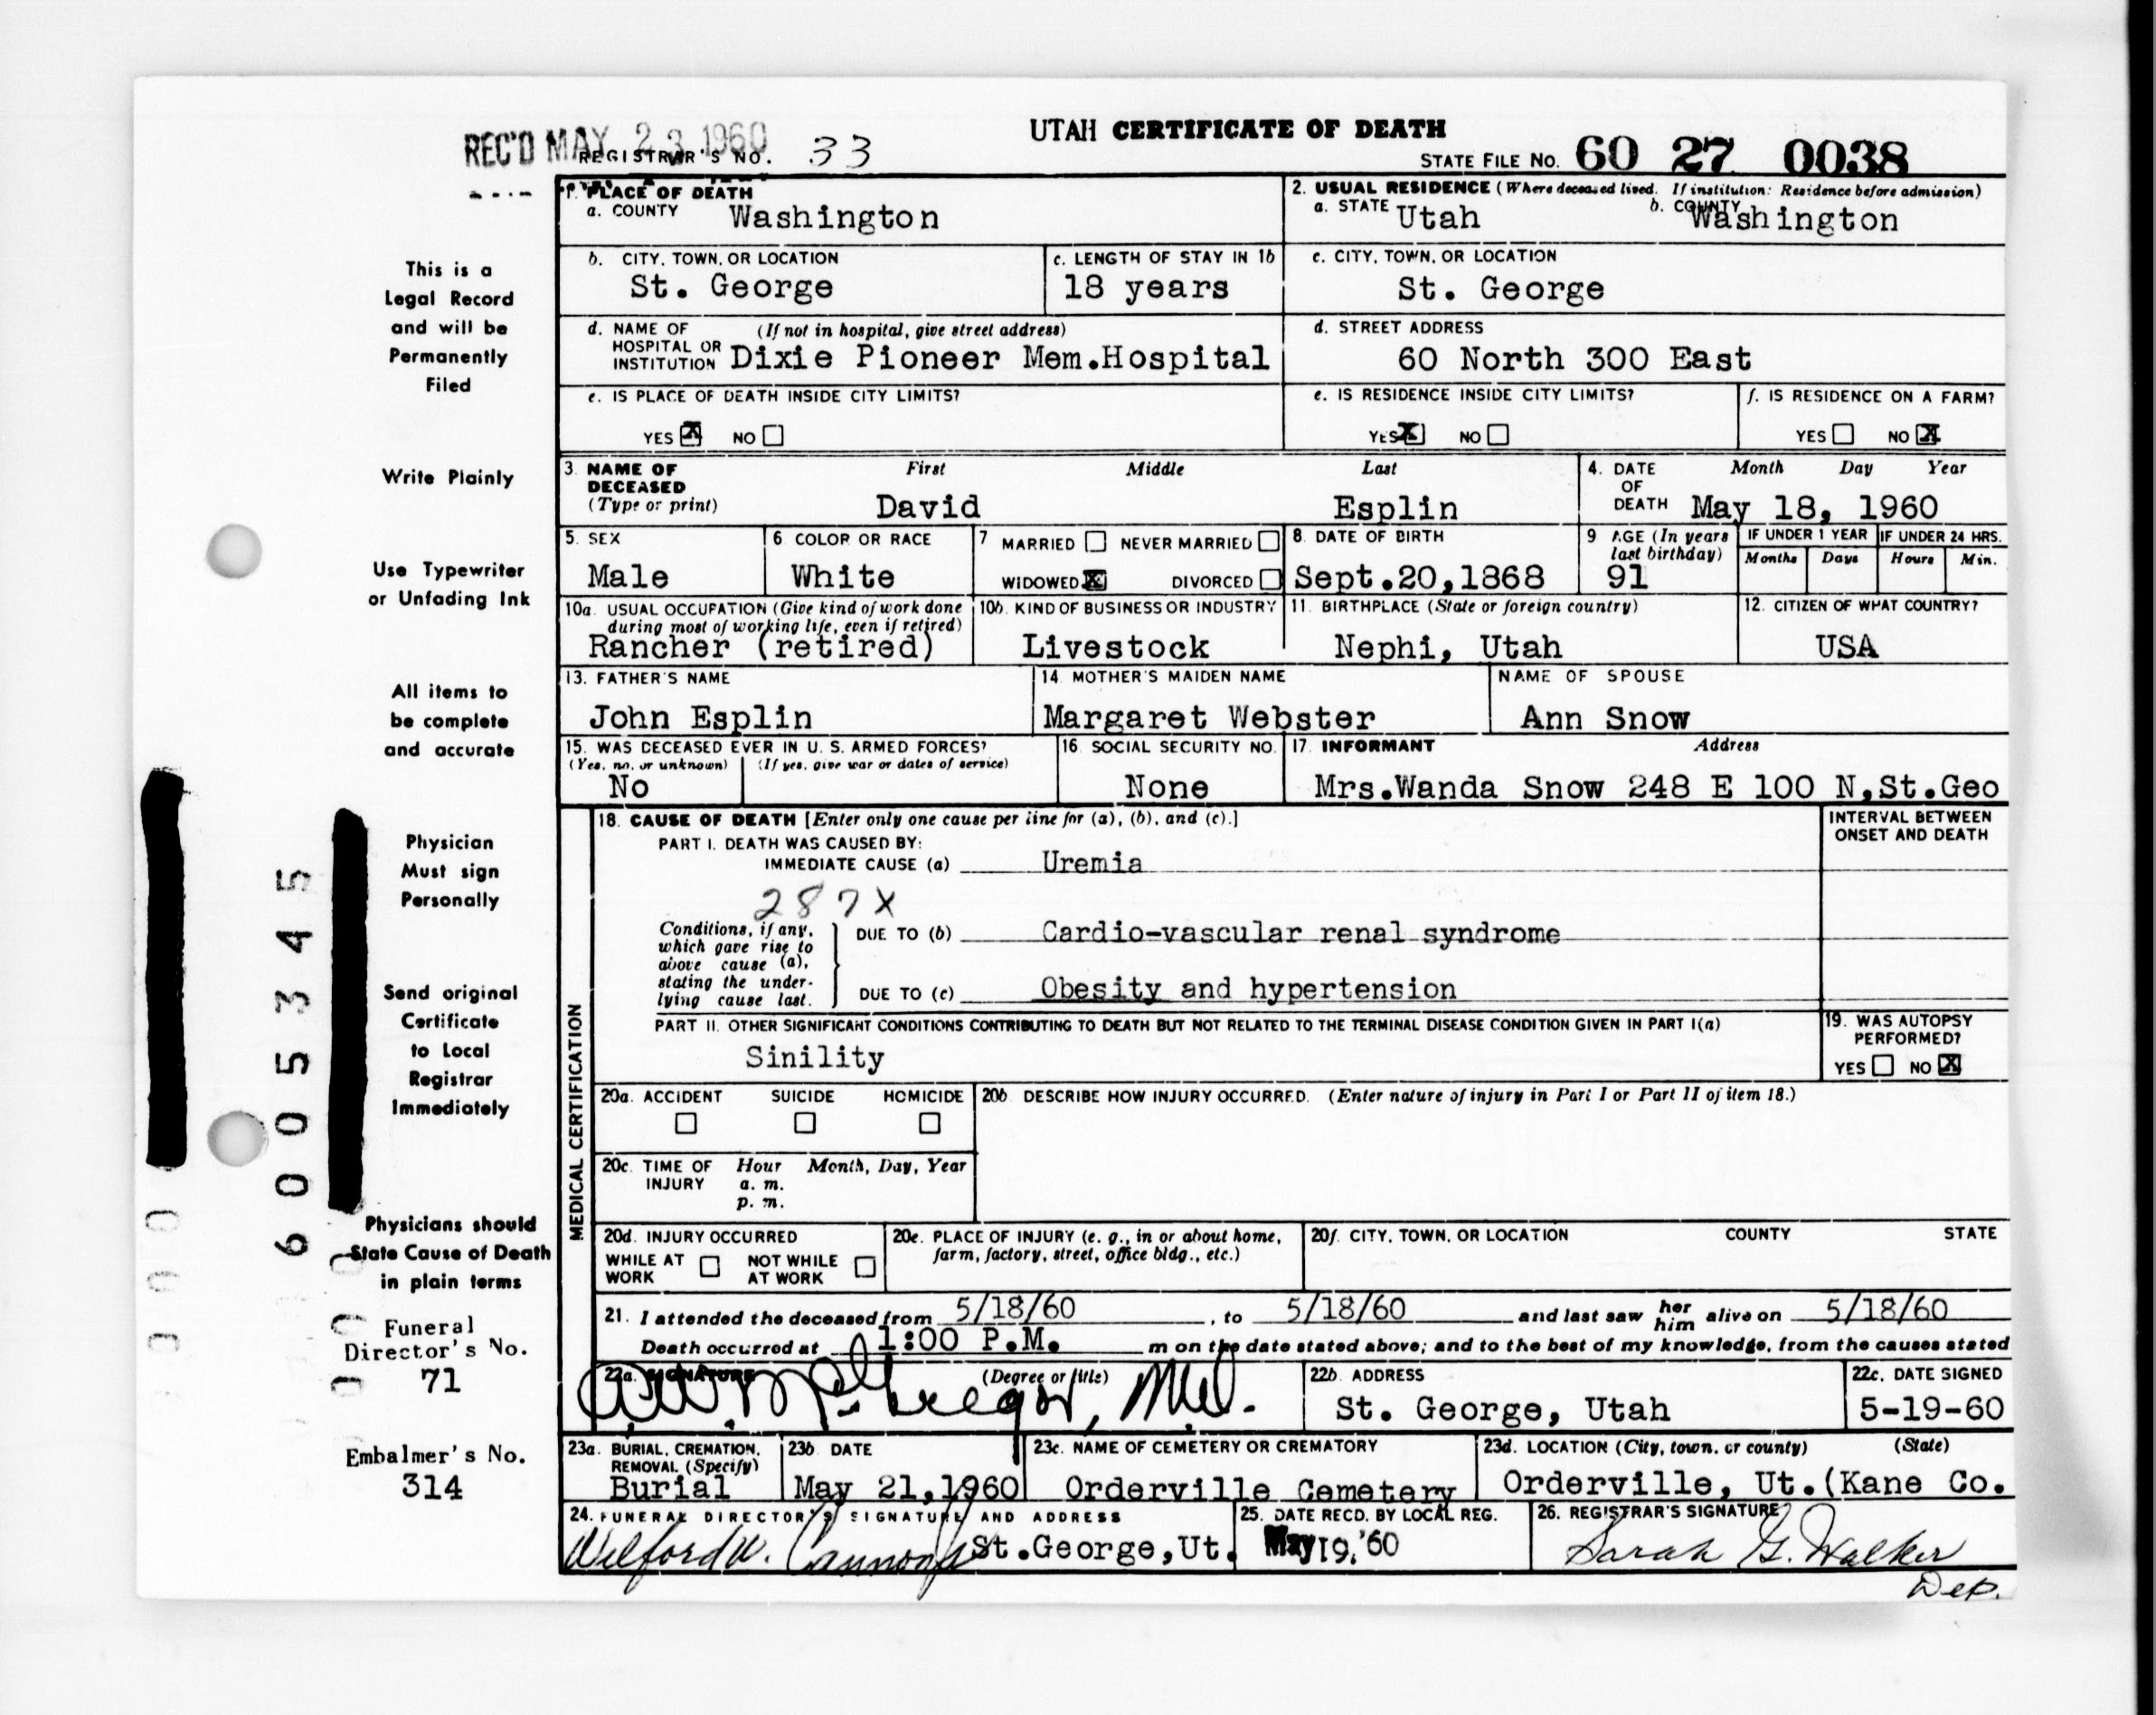 UTAH CERTIFICATE OF DEATH
REC'D MAY 23 1960
REGISTRAR'S NO. 33
STATE FILE NO. 60 27 0038
1. PLACE OF DEATH
a. COUNTY Washington
2. USUAL RESIDENCE (Where deceased lived. If institution: Residence before admission)
a. STATE Utah b. COUNTY Washington
b. CITY, TOWN, OR LOCATION
St. George
c. LENGTH OF STAY IN 1b
18 years
c. CITY, TOWN, OR LOCATION
St. George
d. NAME OF (If not in hospital, give street address)
HOSPITAL OR
INSTITUTION Dixie Pioneer Mem.Hospital
d. STREET ADDRESS
60 North 300 East
e. IS PLACE OF DEATH INSIDE CITY LIMITS?
YES X NO
e. IS RESIDENCE INSIDE CITY LIMITS?
YES X NO
f. IS RESIDENCE ON A FARM?
YES NO X
3. NAME OF DECEASED
(Type or print)
First Middle Last
David Esplin
4. DATE OF DEATH
Month Day Year
May 18, 1960
5. SEX
Male
6 COLOR OR RACE
White
7 MARRIED NEVER MARRIED
WIDOWED X DIVORCED
8. DATE OF BIRTH
Sept.20,1868
9 AGE (In years
last birthday)
91
IF UNDER 1 YEAR
Months Days
IF UNDER 24 HRS.
Hours Min.
10a. USUAL OCCUPATION (Give kind of work done
during most of working life, even if retired)
Rancher (retired)
10b. KIND OF BUSINESS OR INDUSTRY
Livestock
11. BIRTHPLACE (State or foreign country)
Nephi, Utah
12. CITIZEN OF WHAT COUNTRY?
USA
13. FATHER'S NAME
John Esplin
14. MOTHER'S MAIDEN NAME
Margaret Webster
NAME OF SPOUSE
Ann Snow
15. WAS DECEASED EVER IN U. S. ARMED FORCES?
(Yes, no, or unknown) (If yes, give war or dates of service)
No
16. SOCIAL SECURITY NO.
None
17. INFORMANT Address
Mrs.Wanda Snow 248 E 100 N,St.Geo
MEDICAL CERTIFICATION
18. CAUSE OF DEATH [Enter only one cause per line for (a), (b), and (c).]
INTERVAL BETWEEN
ONSET AND DEATH
PART I. DEATH WAS CAUSED BY:
IMMEDIATE CAUSE (a) Uremia
287X
Conditions, if any,
which gave rise to
above cause (a),
stating the under-
lying cause last.
DUE TO (b) Cardio-vascular renal syndrome
DUE TO (c) Obesity and hypertension
PART II. OTHER SIGNIFICANT CONDITIONS CONTRIBUTING TO DEATH BUT NOT RELATED TO THE TERMINAL DISEASE CONDITION GIVEN IN PART I(a)
Sinility
19. WAS AUTOPSY
PERFORMED?
YES NO X
20a. ACCIDENT SUICIDE HOMICIDE
20b. DESCRIBE HOW INJURY OCCURRED. (Enter nature of injury in Part I or Part II of item 18.)
20c. TIME OF INJURY
Hour Month, Day, Year
a. m.
p. m.
20d. INJURY OCCURRED
WHILE AT WORK NOT WHILE AT WORK
20e. PLACE OF INJURY (e. g., in or about home,
farm, factory, street, office bldg., etc.)
20f. CITY, TOWN, OR LOCATION COUNTY STATE
21. I attended the deceased from 5/18/60, to 5/18/60 and last saw her him alive on 5/18/60
Death occurred at 1:00 P.M. m on the date stated above; and to the best of my knowledge, from the causes stated
22a. SIGNATURE (Degree or title)
McGregor, M.D.
22b. ADDRESS
St. George, Utah
22c. DATE SIGNED
5-19-60
23a. BURIAL, CREMATION,
REMOVAL (Specify)
Burial
23b. DATE
May 21,1960
23c. NAME OF CEMETERY OR CREMATORY
Orderville Cemetery
23d. LOCATION (City, town, or county) (State)
Orderville, Ut.(Kane Co.
24. FUNERAL DIRECTOR'S SIGNATURE AND ADDRESS
Wilford W. Cannon St.George,Ut.
25. DATE RECD. BY LOCAL REG.
May 19,'60
26. REGISTRAR'S SIGNATURE
Sarah G. Walker
Dep.
This is a
Legal Record
and will be
Permanently
Filed
Write Plainly
Use Typewriter
or Unfading Ink
All items to
be complete
and accurate
Physician
Must sign
Personally
Send original
Certificate
to Local
Registrar
Immediately
Physicians should
State Cause of Death
in plain terms
Funeral
Director's No.
71
Embalmer's No.
314
6005345